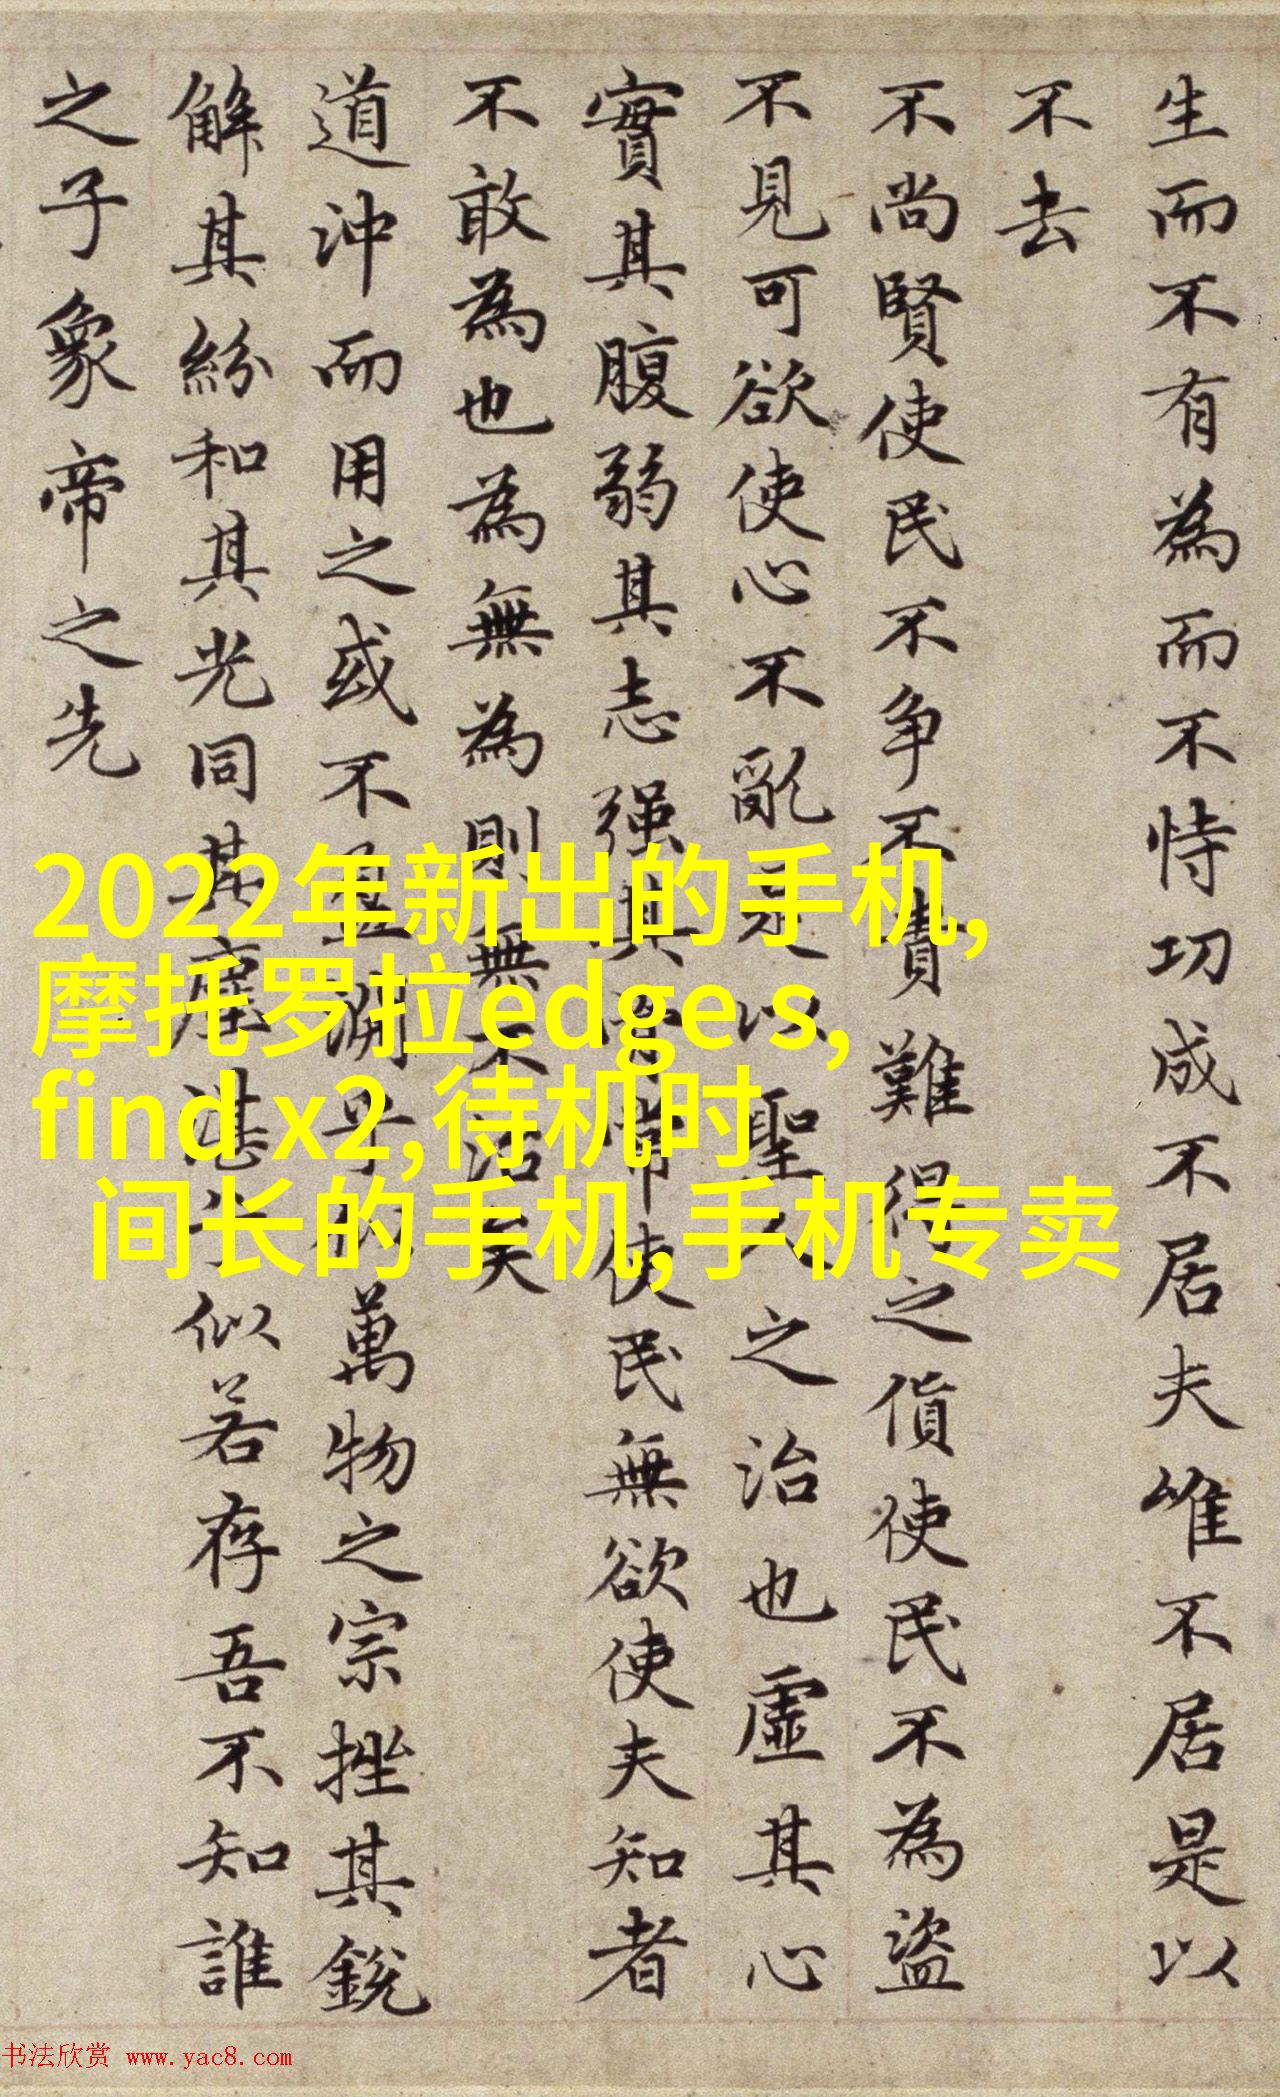 生而不有為而不恃功成不居夫唯不居是以
不去
不尚賢使民不争不貴難得之貨使民不為盜
不見可欲使心不亂是以聖人之治也虛其心
實其腹弱其志强其骨常使民無欲使夫知者
不敢為也為無為則無不治矣
道沖而用之或不盈淵乎似萬物之宗挫其銳
解其紛和其光同其塵湛兮似若存吾不知誰
之子象帝之先
2022年新出的手机,
摩托罗拉edge s,
find x2,待机时
间长的手机,手机专卖
书法欣赏 www.yac8.com